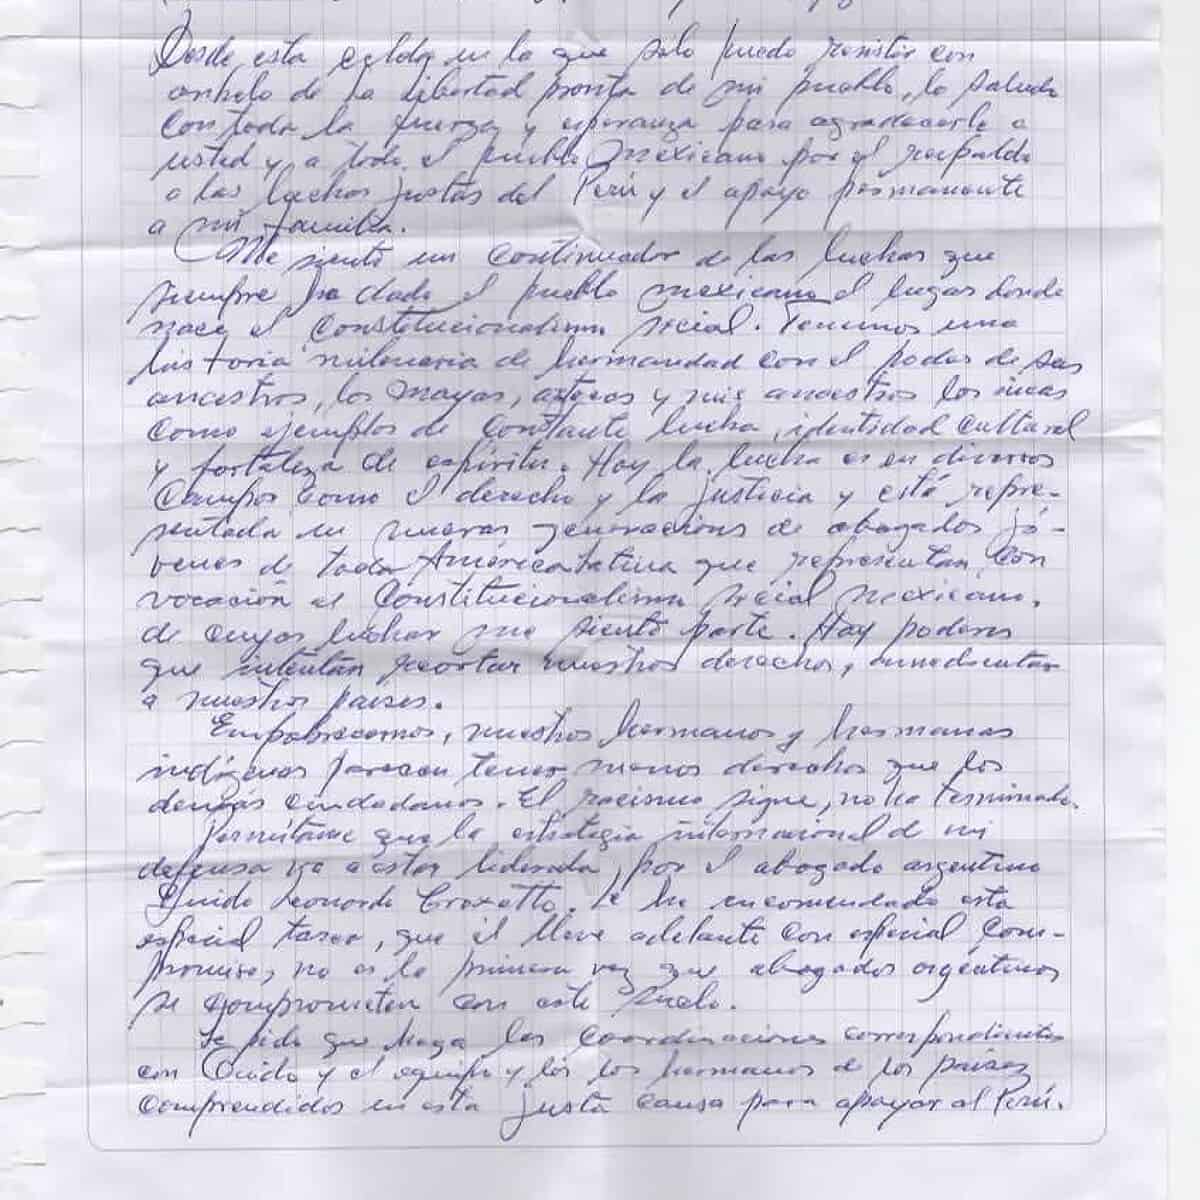 Desde esta celda en la que solo puedo resistir con
anhelo de la libertad pronta de mi pueblo, lo saludo
con toda la fuerza y esperanza para agradecerle a
usted y a todo el pueblo mexicano por el respaldo
a las luchas justas del Perú y el apoyo permanente
a mi familia.
Me siento un continuador de las luchas que
siempre ha dado el pueblo mexicano el lugar donde
nace el constitucionalismo social. Tenemos una
historia milenaria de hermandad con el poder de sus
ancestros, los mayas, aztecas y mis ancestros los incas
como ejemplos de constante lucha, identidad cultural
y fortaleza de espíritu. Hoy la lucha es en diversos
campos como el derecho y la justicia y está repre-
sentada en nuevas generaciones de abogados jó-
venes de toda América Latina que representan con
vocación el constitucionalismo social mexicano,
de cuyas luchas me siento parte. Hay poderes
que intentan recortar nuestros derechos,
a nuestros países.
Empobrecernos, nuestros hermanos y hermanas
indígenas parecen tener menos derechos que los
demás ciudadanos. El racismo sigue, no ha terminado.
Permítame que la estrategia internacional de mi
defensa va a estar liderada, por el abogado argentino
Guido Leonardo Croxatto. Le he encomendado esta
especial tarea, que él lleve adelante con especial com-
promiso, no es la primera vez que abogados argentinos
se comprometen con este suelo.
Le pido que haga las coordinaciones correspondientes
con Guido y el equipo y los los hermanos de los países
comprendidos en esta justa causa para apoyar al Perú.